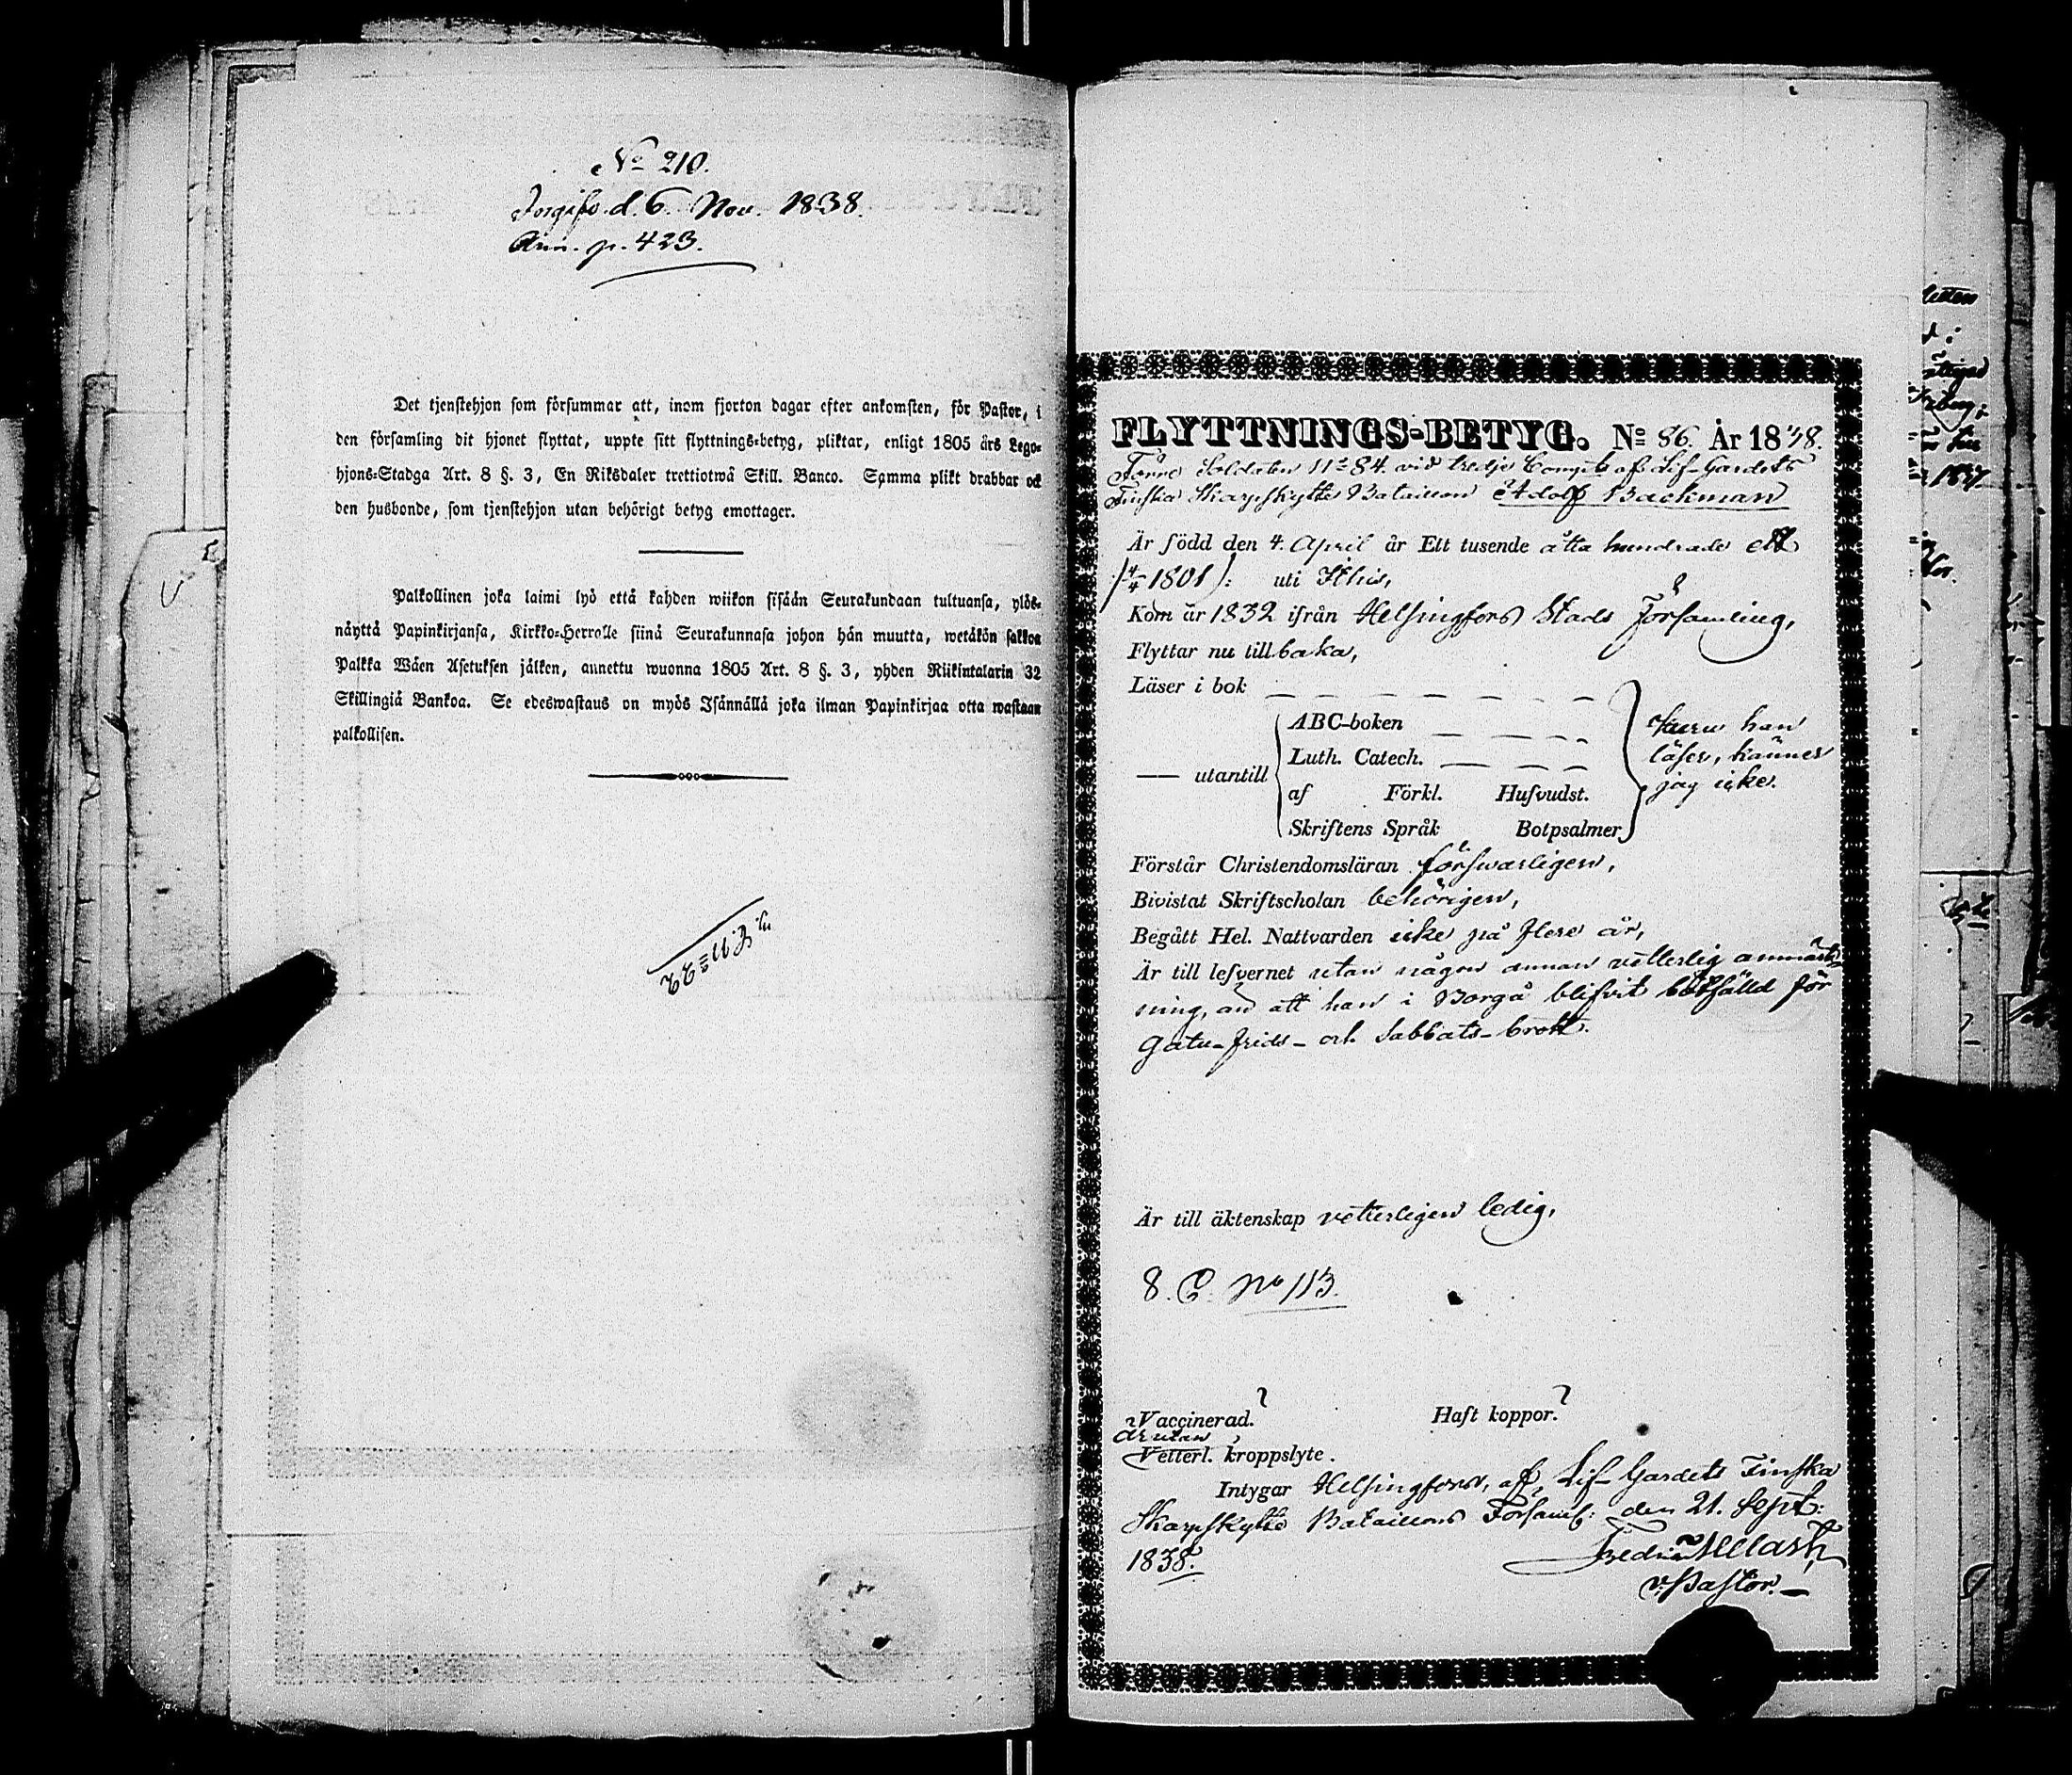 No 210.
d. 6. Nov. 1838.
p. 423.
Det tjenstehjon som försummar att, inom fjorton dagar efter ankomsten, för Pastor, i
den församling dit hjonet flyttat, uppte sitt flyttnings-betyg, pliktar, enligt 1805 års Lego-
hjons-Stadga Art. 8 §. 3, En Riksdaler trettiotwå Skill. Banco. Samma plikt drabbar ock
den husbonde, som tjenstehjon utan behörigt betyg emottager.
Palkollinen joka laimi lyö että kahden wiikon sisään Seurakundaan tultuansa, ylös-
näyttä Papinkirjansa, Kirkko-Herralle siinä Seurakunnasa johon hän muutta, wetäkön sakkoa
Palkka Wäen Asetuksen jälken, annettu wuonna 1805 Art. 8 §. 3, yhden Riikintalarin 32
Skillingiä Bankoa. Se edeswastaus on myös Isännällä joka ilman Papinkirjaa otta wastaan
palkollisen.
FLYTTNINGS-BETYG. No 86. År 1838.
Förre Soldaten No 84. vid tredje Compt: af Lif-Gardets
Finska Skarpskytte Bataillon Adolf Backman
Är född den 4. April år Ett tusende åtta hundrade ett
(4/4 1801): uti Ithis,
Kom år 1832 ifrån Helsingfors Stads Församling,
Flyttar nu tillbaka,
Läser i bok
— utantill
ABC-boken
Luth. Catech.
af Förkl. Husvudst.
Skriftens Språk Botpsalmer
huru han
läser, känner
jag icke.
Förstår Christendomsläran försvarligen,
Bivistat Skriftscholan behörigen,
Begått Hel. Nattvarden icke på flere år,
Är till lefvernet utan någon annan vetterlig anmärk-
ning, än att han i Borgå blifvit botfälld för
gatu-frids- och Sabbats-brott.
Är till äktenskap vetterligen ledig,
8. C. No 113.
Vaccinerad? Haft koppor?
är utan
Vetterl. kroppslyte.
Intygar Helsingfors, af Lif-Gardets Finska
Skarpskytte Bataillons Församl: den 21. Sept:
1838.
v: Pastor.